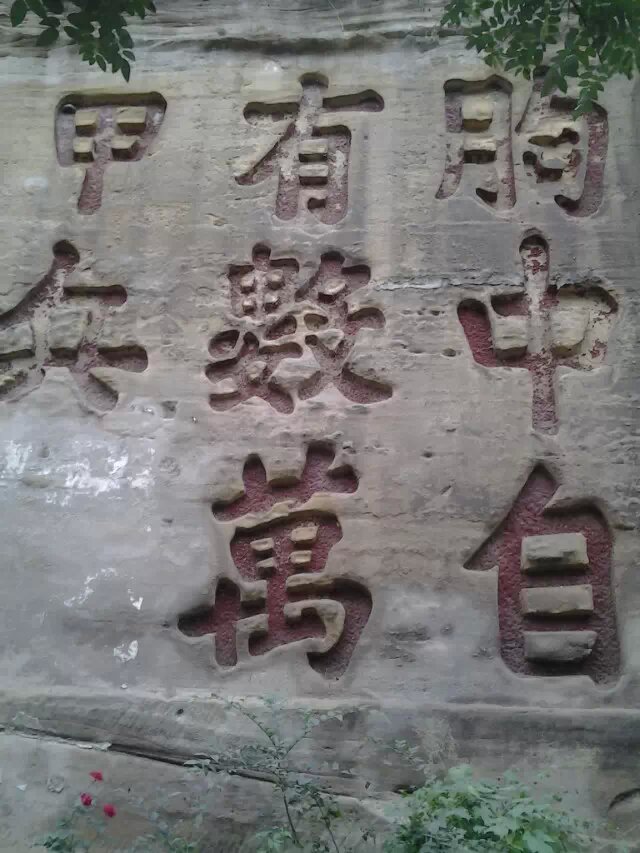 胸中自
有數萬
甲兵